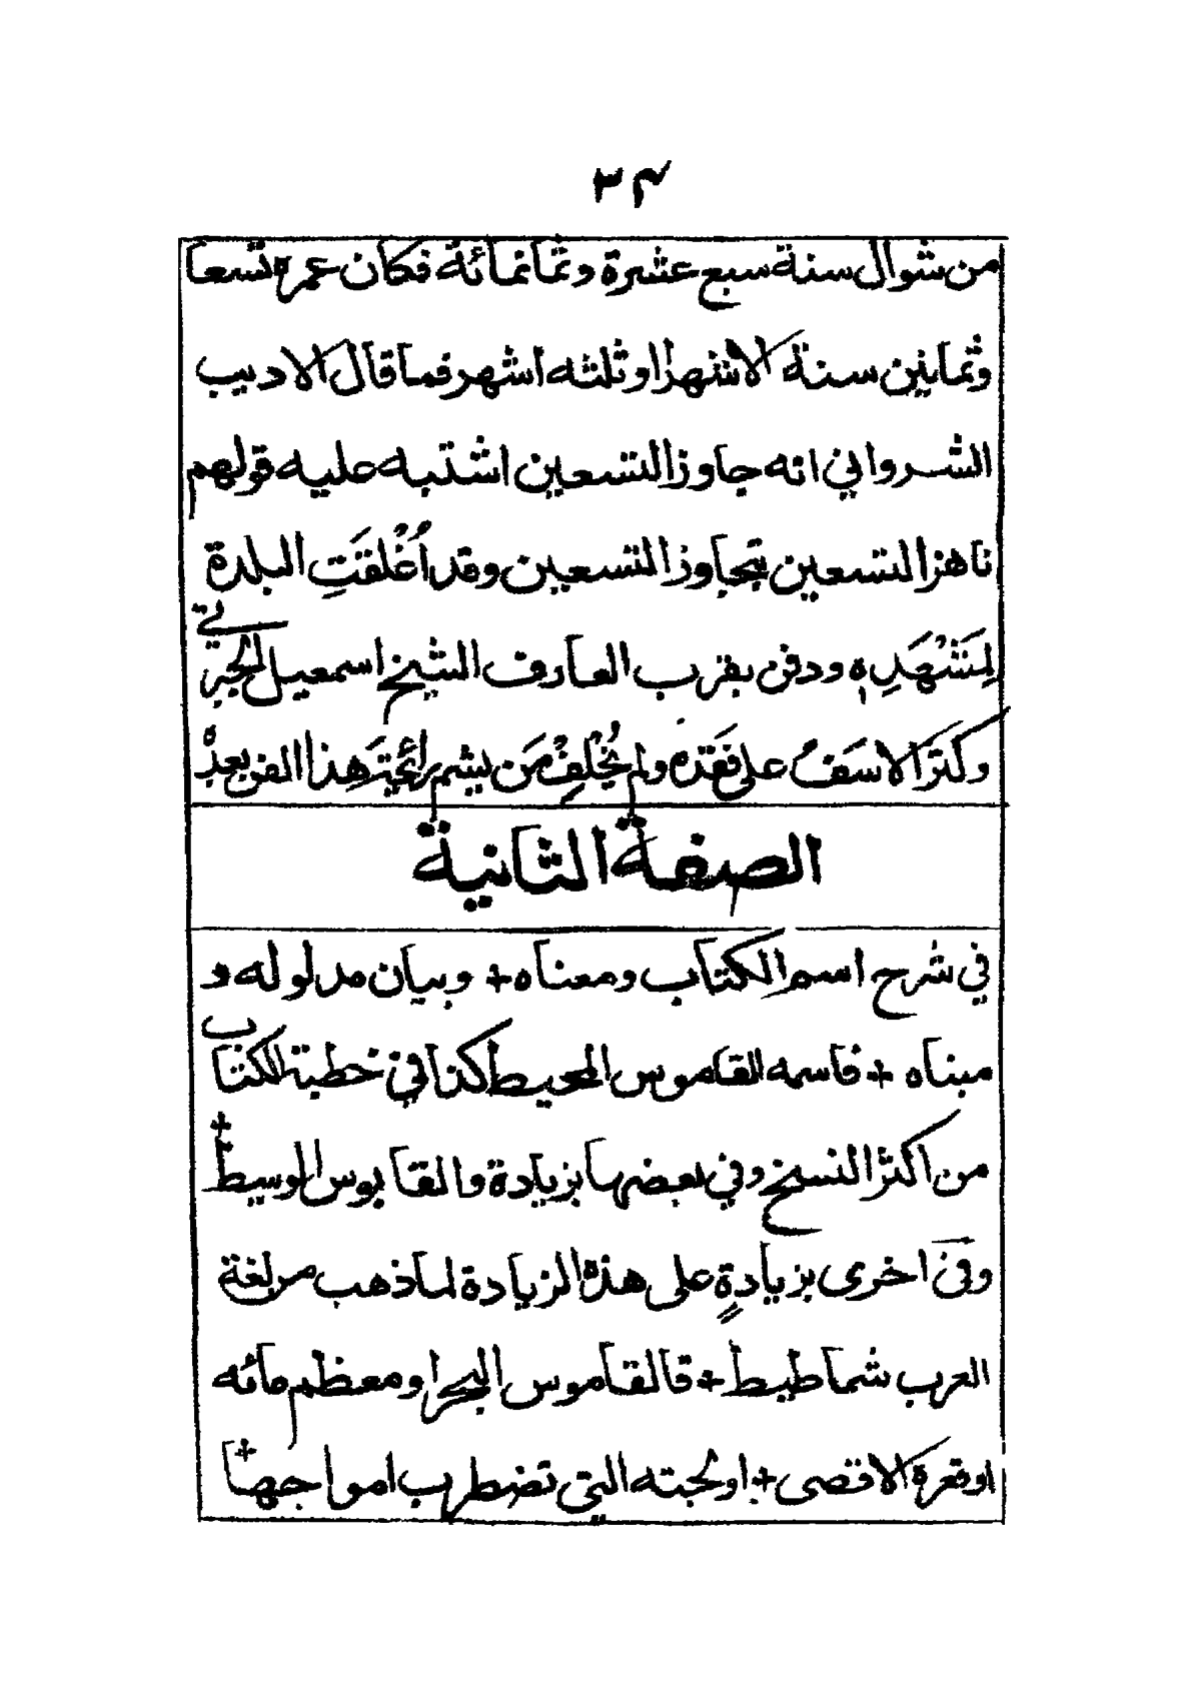 ٣٤
من شوال سنة سبع عشرة وثمانمائة فكان عمره تسعا
وثمانين سنة الا شهرا او ثلثه اشهر فما قال الاديب
الشرواني انه جاوز التسعين اشتبه عليه قولهم
ناهز التسعين بتجاوز التسعين وقد اُغْلقَتِ البلدة
لِمَشْهَدِهٖ ودفن بقرب العارف الشيخ اسمعيل الجبرتي
وكَثَرَ الاسَفُ على فَقَدْه ولم يُخْلِفْ مَن يشم رائحَتِه هذا الفن بعدُ
الصفحة الثانية
في شرح اسم الكتاب ومعناه + وبيان مدلوله و
مبناه + فاسمه القاموس المحيط كذا في خطبة الكتاب
من اكثر النسخ وفي بعضها بزيادة والقابوس الوسيط +
وفي اخرى بزيادةٍ على هذه الزيادة لما ذهب من لغة
العرب شماطيط + فالقاموس البحر او معظم مائه
او قعره الاقصى + او لجته التي تضطرب امواجها +